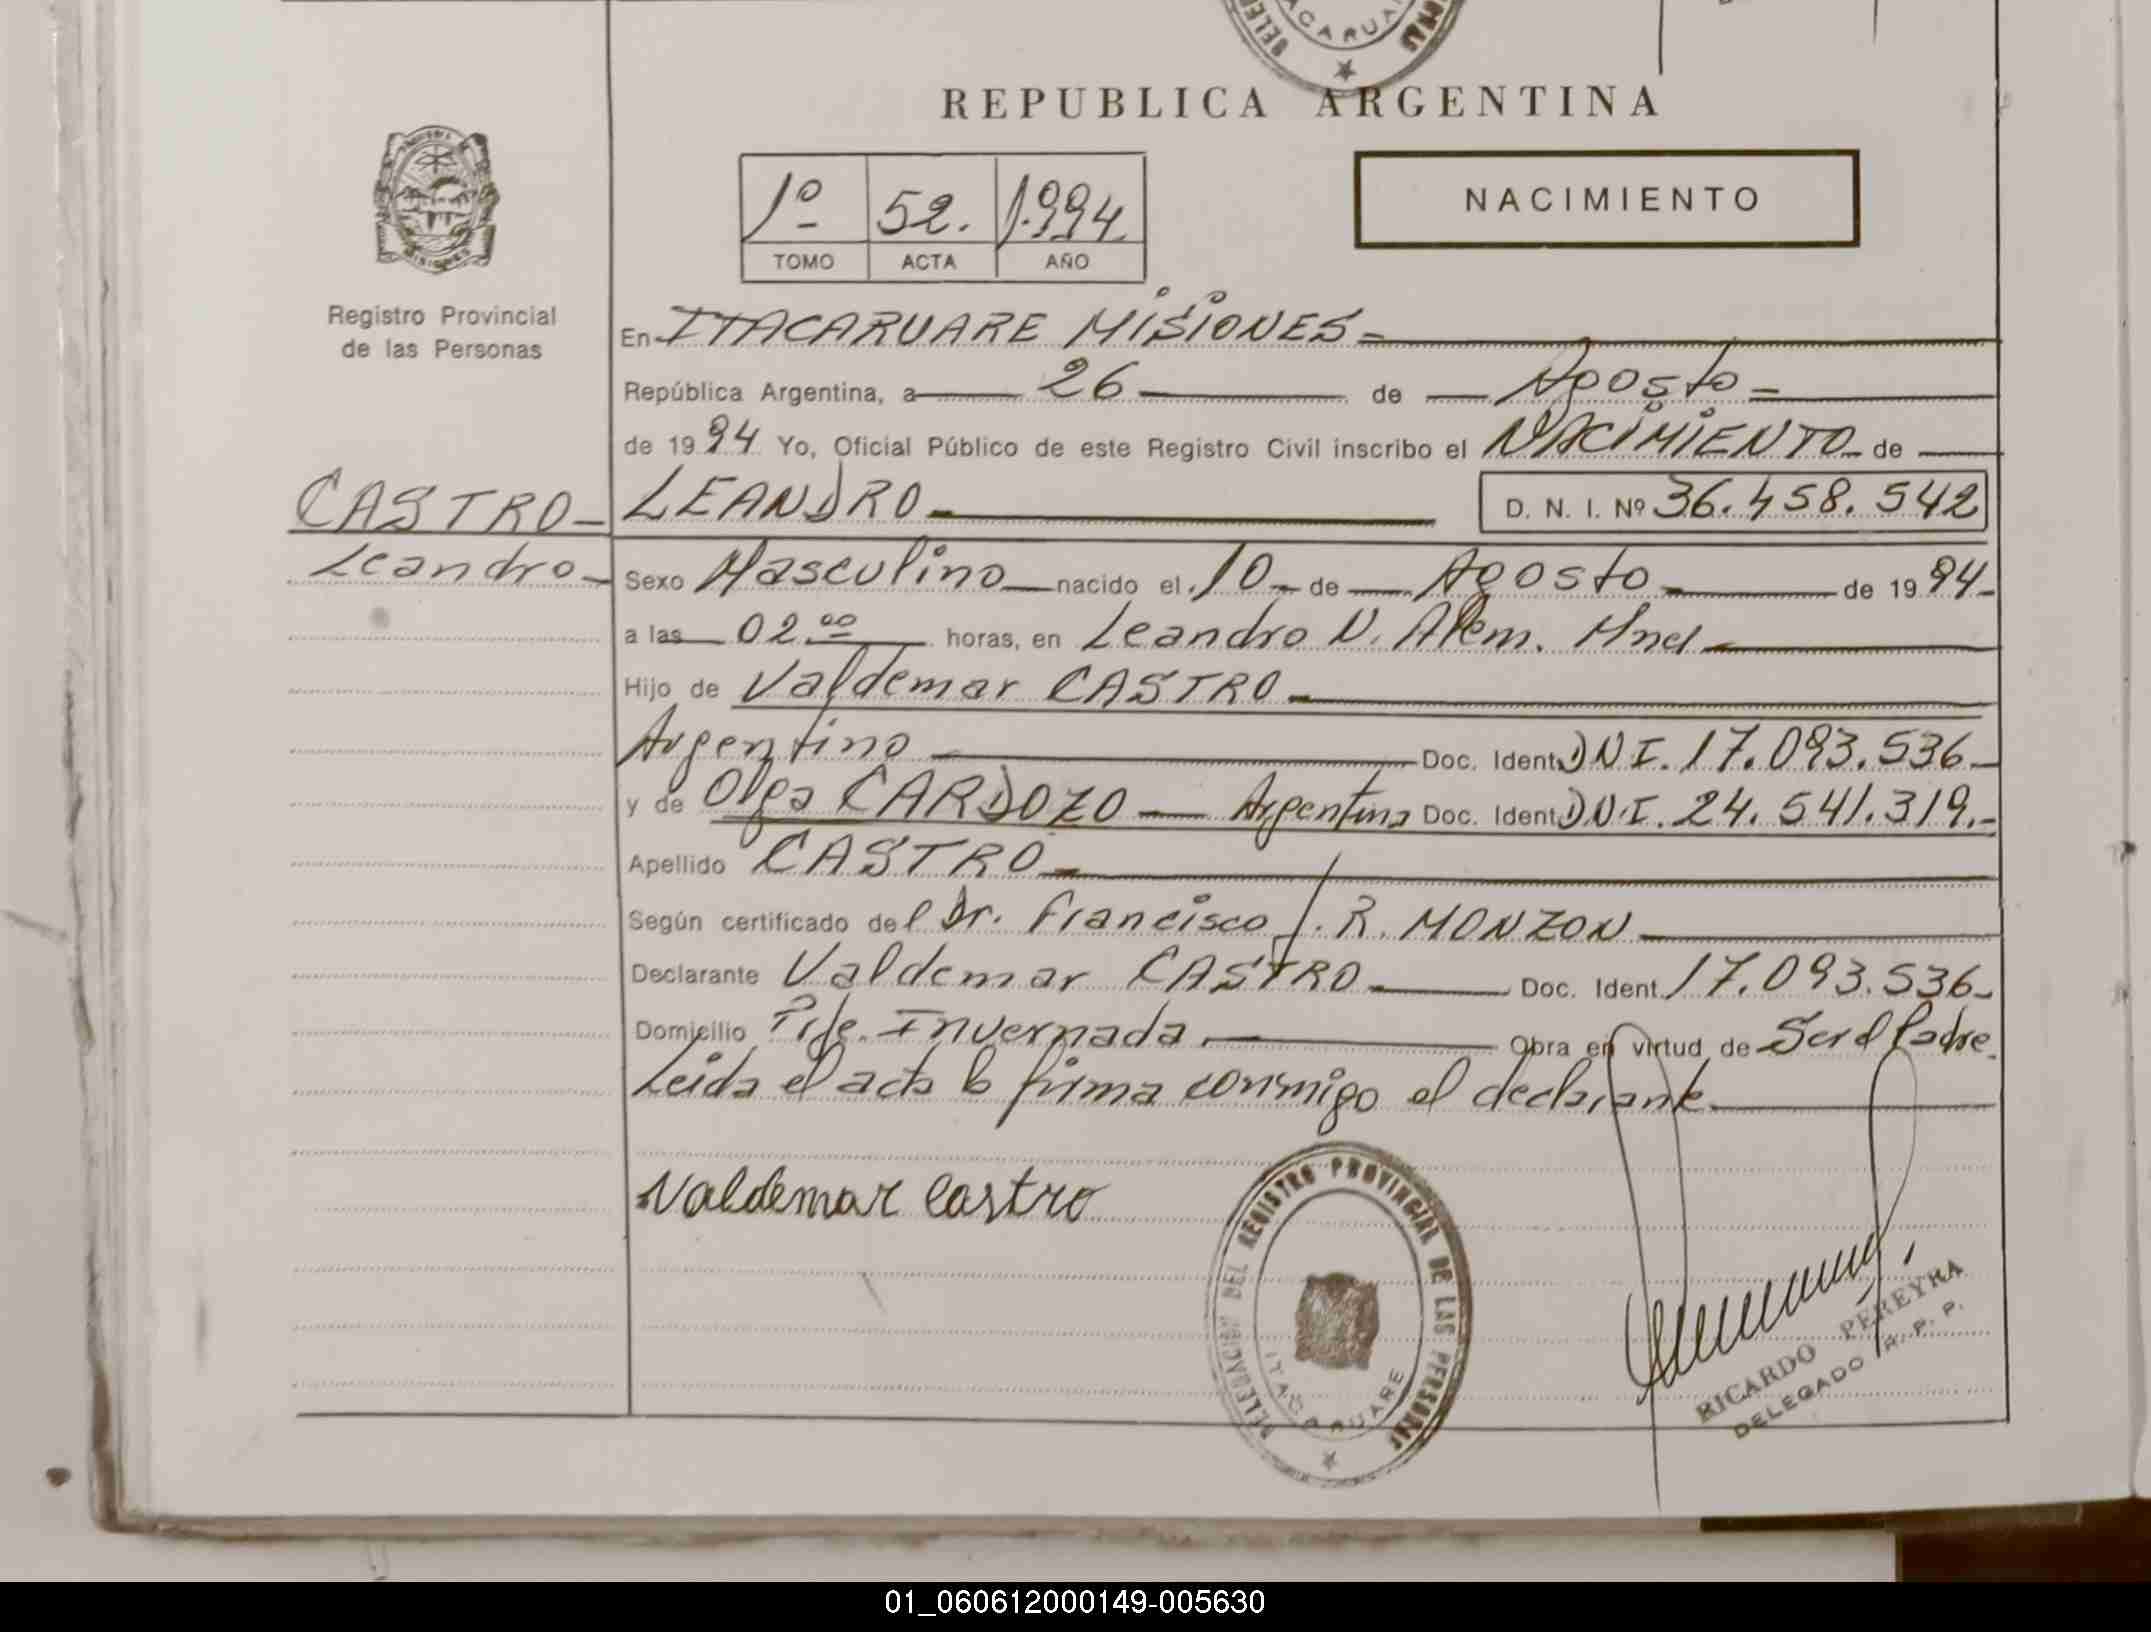 REPUBLICA ARGENTINA
NACIMIENTO
1º 52. 1.994
TOMO ACTA AÑO
MISIONES
Registro Provincial
de las Personas
En ITACARUARE MISIONES
República Argentina, a 26 de Agosto
de 1994 Yo, Oficial Público de este Registro Civil inscribo el NACIMIENTO de
CASTRO LEANDRO D. N. I. Nº 36.458.542
Leandro Sexo Masculino nacido el 10 de Agosto de 1994
a las 02 00 horas, en Leandro N. Alem. Mnes
Hijo de Valdemar CASTRO
Argentino Doc. Ident. DNI. 17.093.536
y de Olga CARDOZO Argentina Doc. Ident. DNI. 24.541.319.
Apellido CASTRO
Según certificado del Dr. Francisco J. R. MONZON
Declarante Valdemar CASTRO Doc. Ident. 17.093.536
Domicilio Pje. Invernada Obra en virtud de Ser el Padre
Leida el acta la firma conmigo el declarante
Valdemar Castro
DELEGACION DEL REGISTRO PROVINCIAL DE LAS PERSONAS
ITACARUARE
RICARDO PEREYRA
DELEGADO R. P. P.
01_060612000149-005630